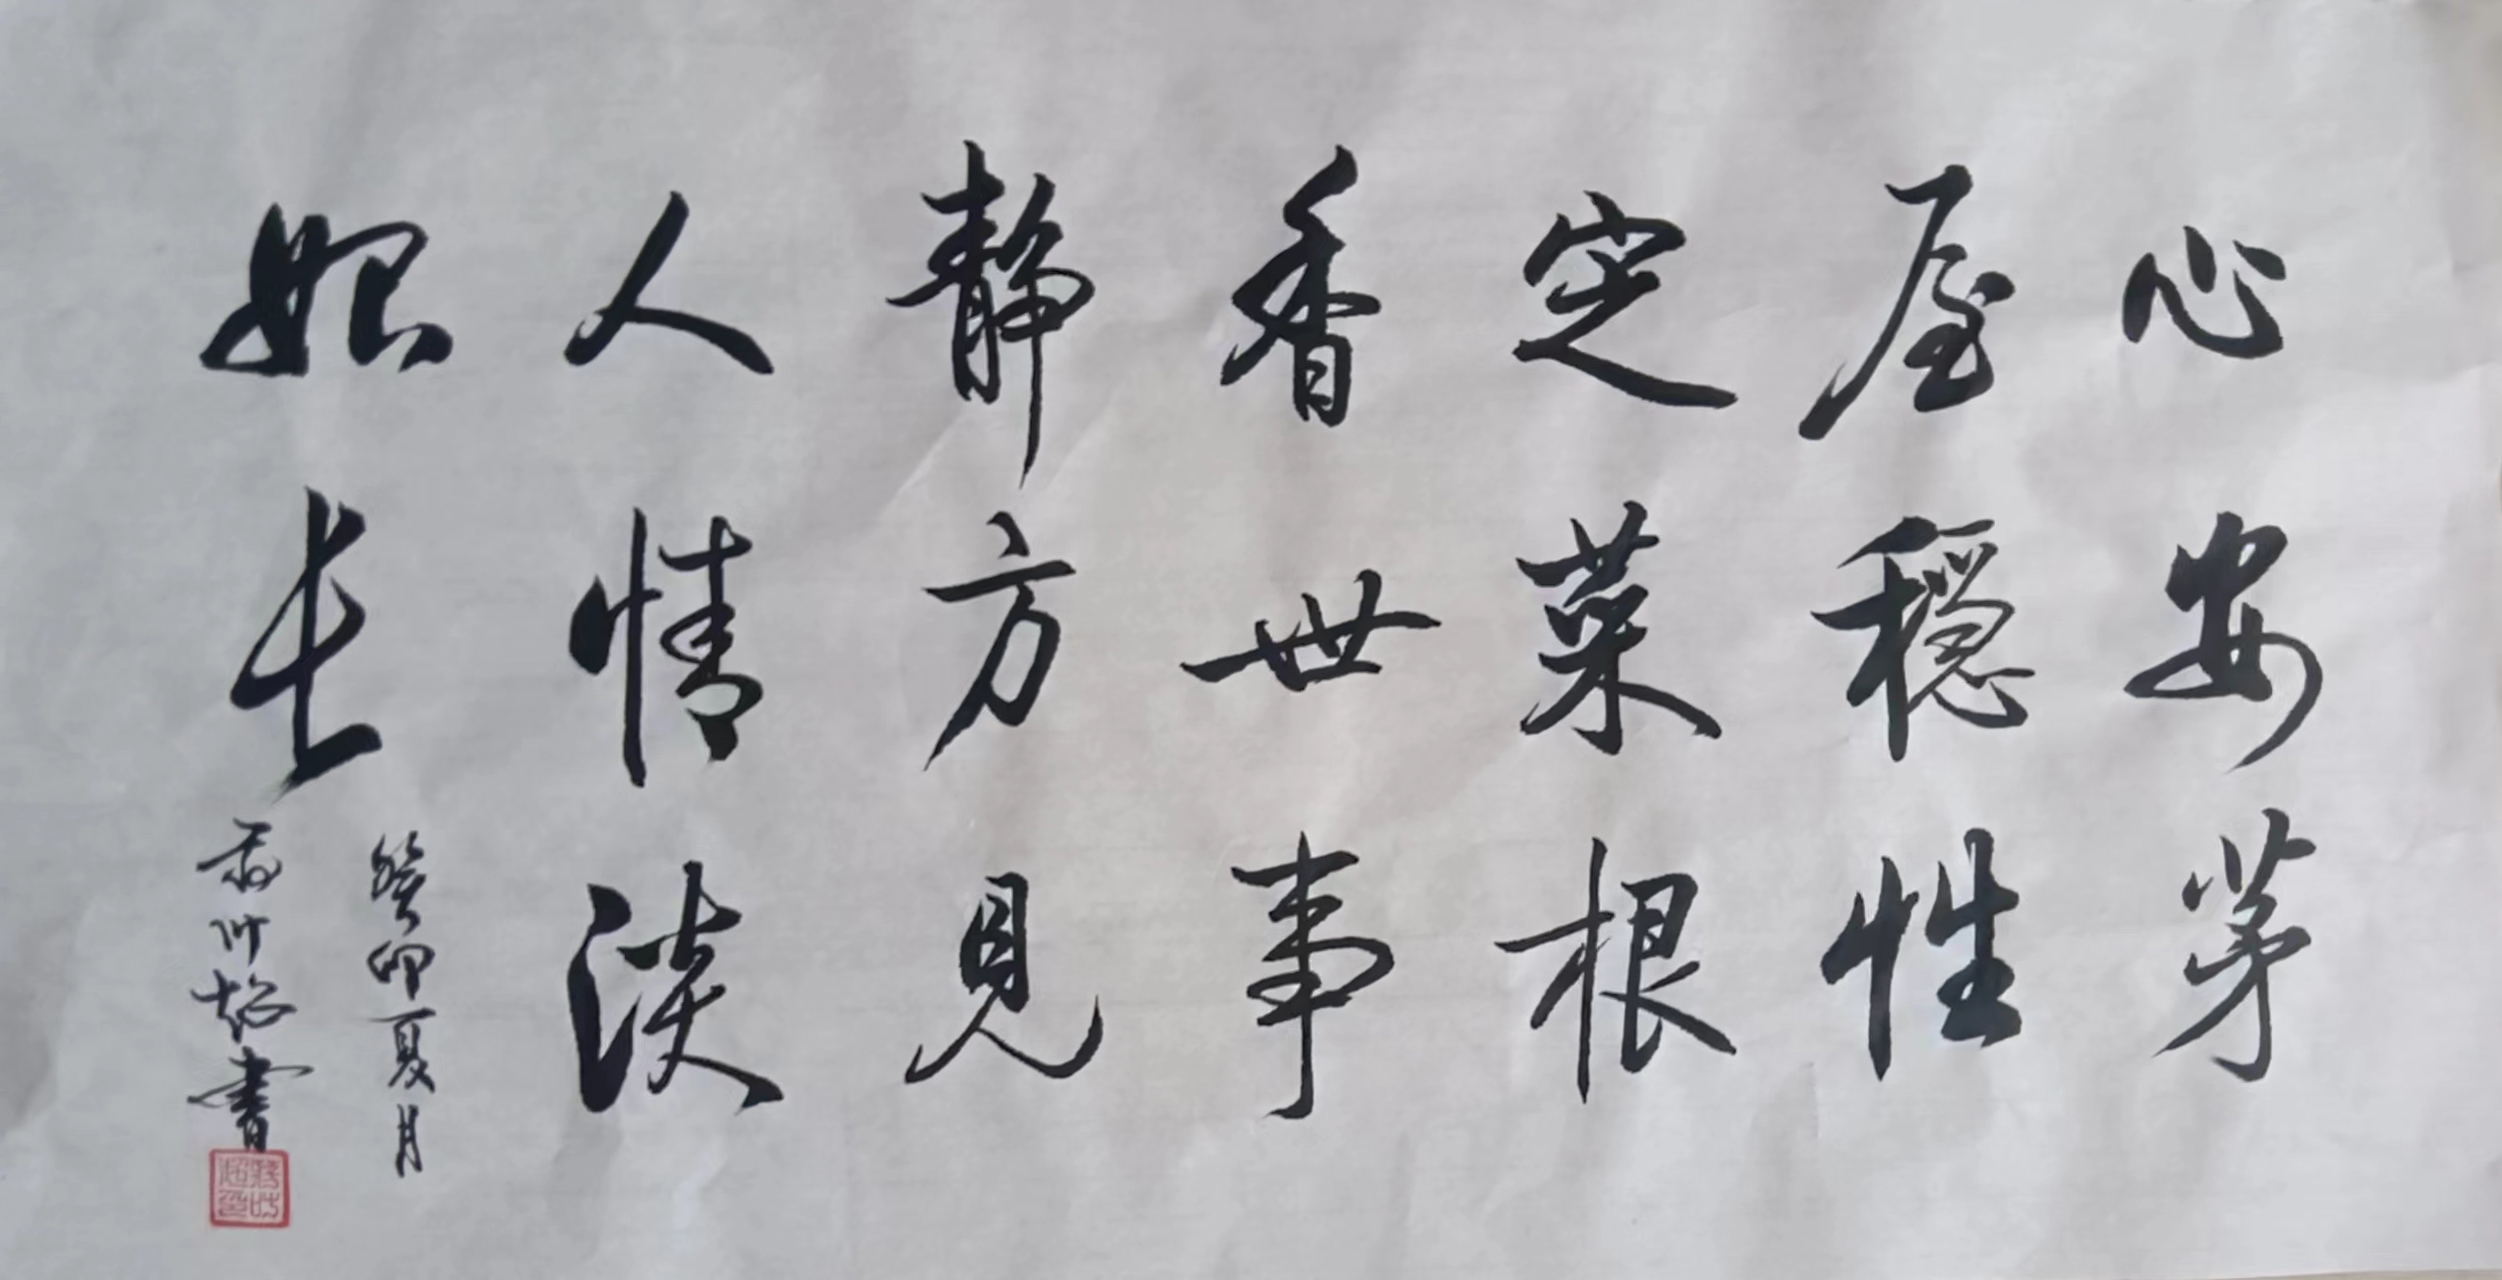 心安茅
屋穩性
定菜根
香世事
静方見
人情淡
始長
癸卯夏月
書